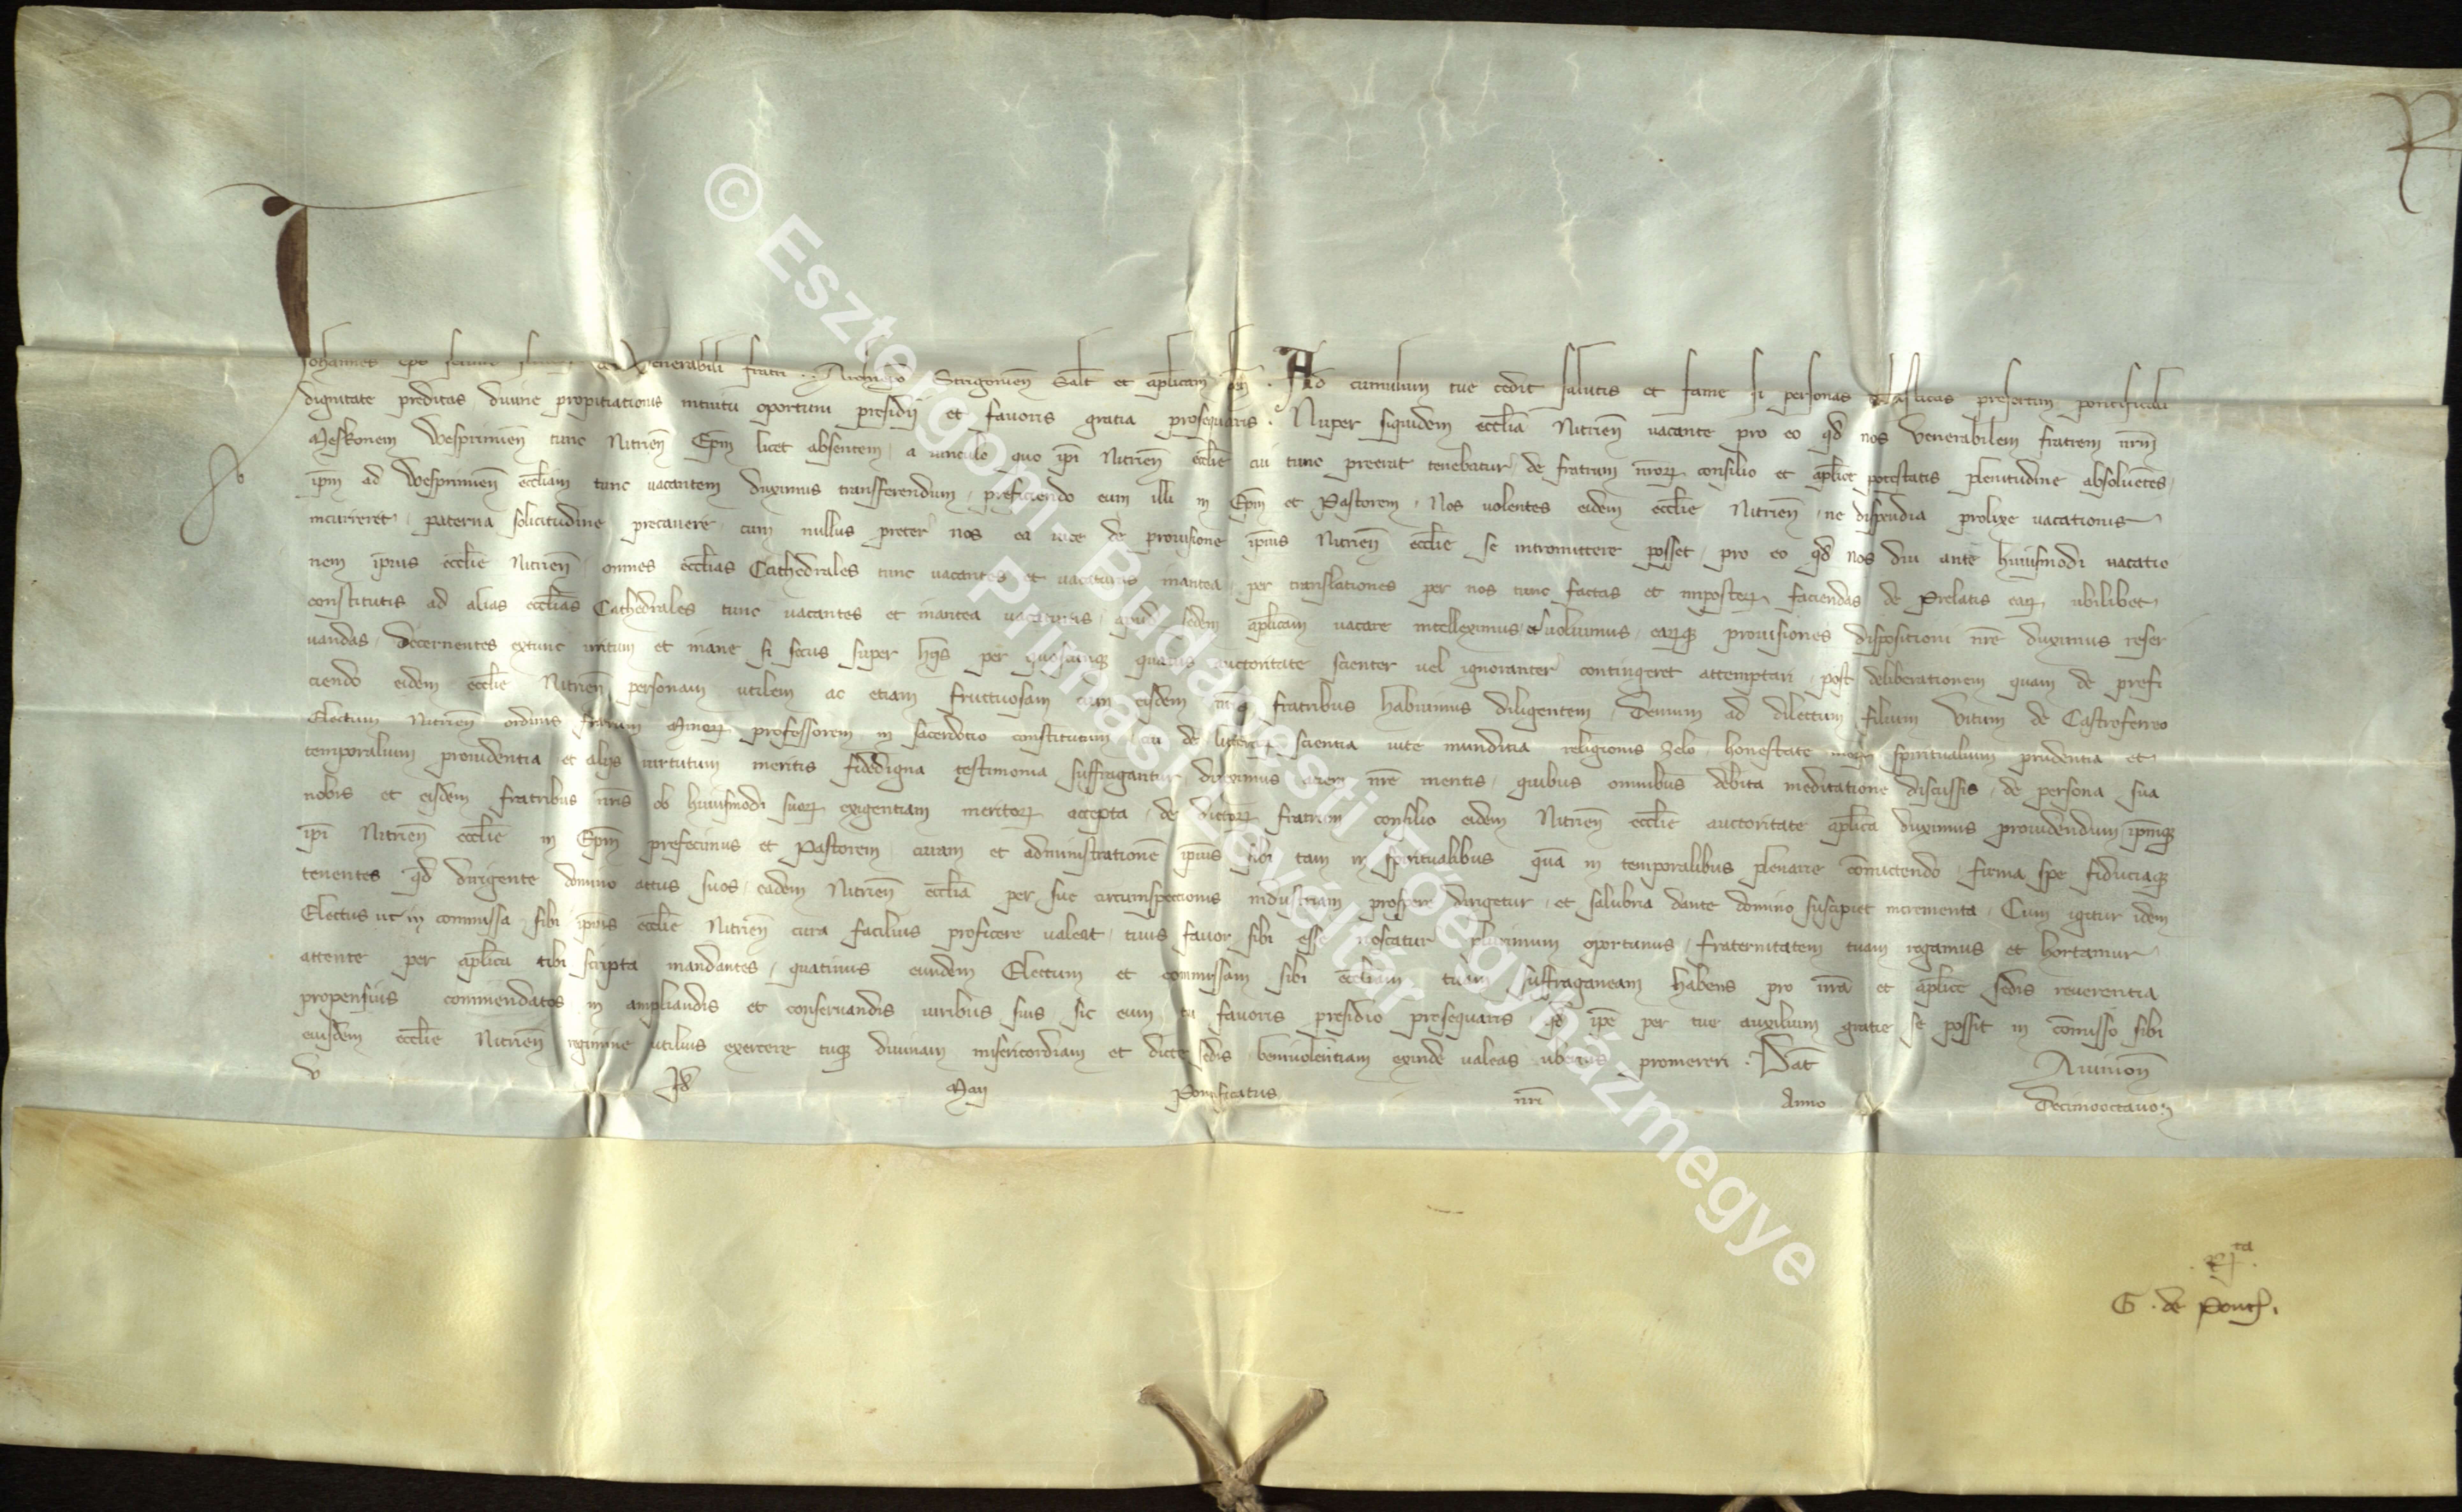 R
Johannes ep̄s seruus seruorum dei Venerabili fratri .. Archiep̄o Strigonien̄ Salt̄ et ap̄licam ben̄ . Ad cumulum tue cedit salutis et fame si personas eccl̄iasticas presertim pontificali
dignitate preditas diuine propitiationis intuitu oportuni presidij et fauoris gratia prosequaris . Nuper siquidem eccl̄ia Nitrien̄ uacante pro eo qd̄ nos Venerabilem fratrem nr̄m
Meskonem Wesprimien̄ tunc Nitrien̄ Ep̄m licet absentem a uinculo quo ip̄i Nitrien̄ eccl̄ie cui tunc preerat tenebatur de fratrum nr̄oꝝ consilio et ap̄lice potestatis plenitudine absoluentes
ip̄m ad Wesprimien̄ eccl̄iam tunc uacantem duximus transferendum , preficiendo eum illi in Ep̄m et Pastorem , Nos uolentes eidem eccl̄ie Nitrien̄ , ne dispendia prolixe uacationis
incurreret , paterna solicitudine precauere , cum nullus preter nos ea uice de prouisione ip̄ius Nitrien̄ eccl̄ie se intromittere posset , pro eo qd̄ nos diu ante huiusmodi uacatio
nem ip̄ius eccl̄ie Nitrien̄ omnes eccl̄ias Cathedrales tunc uacantes et uacaturas inantea per translationes per nos tunc factas et imposteꝝ faciendas de Prelatis eaꝝ ubilibet
constitutis ad alias eccl̄ias Cathedrales tunc uacantes et inantea uacaturas , apud sedem ap̄licam uacare intelleximus et uoluimus , eaꝝqꝫ prouisiones dispositioni nr̄e duximus reser
uandas , decernentes extunc irritum et inane si secus super hijs per quoscunqꝫ quauis auctoritate scienter uel ignoranter contingeret attemptari , post deliberationem quam de prefi
ciendo eidem eccl̄ie Nitrien̄ personam utilem ac etiam fructuosam cum eisdem nr̄is fratribus habuimus diligentem , Demum ad dilectum filium Vitum de Castroferreo
Electum Nitrien̄ ordinis fratrum Minoꝝ professorem in sacerdotio constitutum cui de litteraꝝ scientia uite munditia religionis zelo , honestate moꝝ spiritualium prudentia et
temporalium prouidentia et alijs uirtutum meritis fidedigna testimonia suffragantur direximus aciem nr̄e mentis , quibus omnibus debita meditatione discussis , de persona sua
nobis et eisdem fratribus nr̄is ob huiusmodi suoꝝ exigentiam meritoꝝ accepta , de dictoꝝ fratrum consilio eidem Nitrien̄ eccl̄ie auctoritate ap̄lica duximus prouidendum , ip̄mqꝫ
ip̄i Nitrien̄ eccl̄ie in Ep̄m prefecimus et Pastorem curam et administrationē ip̄ius sibi tam in spiritualibus quā in temporalibus plenarie cōmittendo , firma spe fiduciaqꝫ
tenentes qd̄ dirigente domino actus suos , eadem Nitrien̄ eccl̄ia per sue circumspectionis industriam prospere dirigetur , et salubria dante domino suscipiet incrementa . Cum igitur idem
Electus ut in commissa sibi ip̄ius eccl̄ie Nitrien̄ cura facilius proficere ualeat , tuus fauor sibi esse noscatur plurimum oportunus , fraternitatem tuam rogamus et hortamur
attente per ap̄lica tibi scripta mandantes , quatinus eundem Electum et commissam sibi eccl̄iam tuam suffraganeam habens pro nr̄a et ap̄lice sedis reuerentia
propensius commendatos in ampliandis et conseruandis iuribus suis , sic eum tui fauoris presidio prosequaris , qd̄ ip̄e per tue auxilium gratie se possit in cōmisso sibi
eiusdem eccl̄ie Nitrien̄ regimine utilius exercere tuqꝫ diuinam misericordiam et dicte sedis beniuolentiam exinde ualeas uberius promereri . Dat̄ Auinion̄
v Id̄ Maij Pontificatus nr̄i Anno Decimooctauo
. Rta .
G . de Pont .
© Esztergom-Budapesti Főegyházmegye
Prímási Levéltár